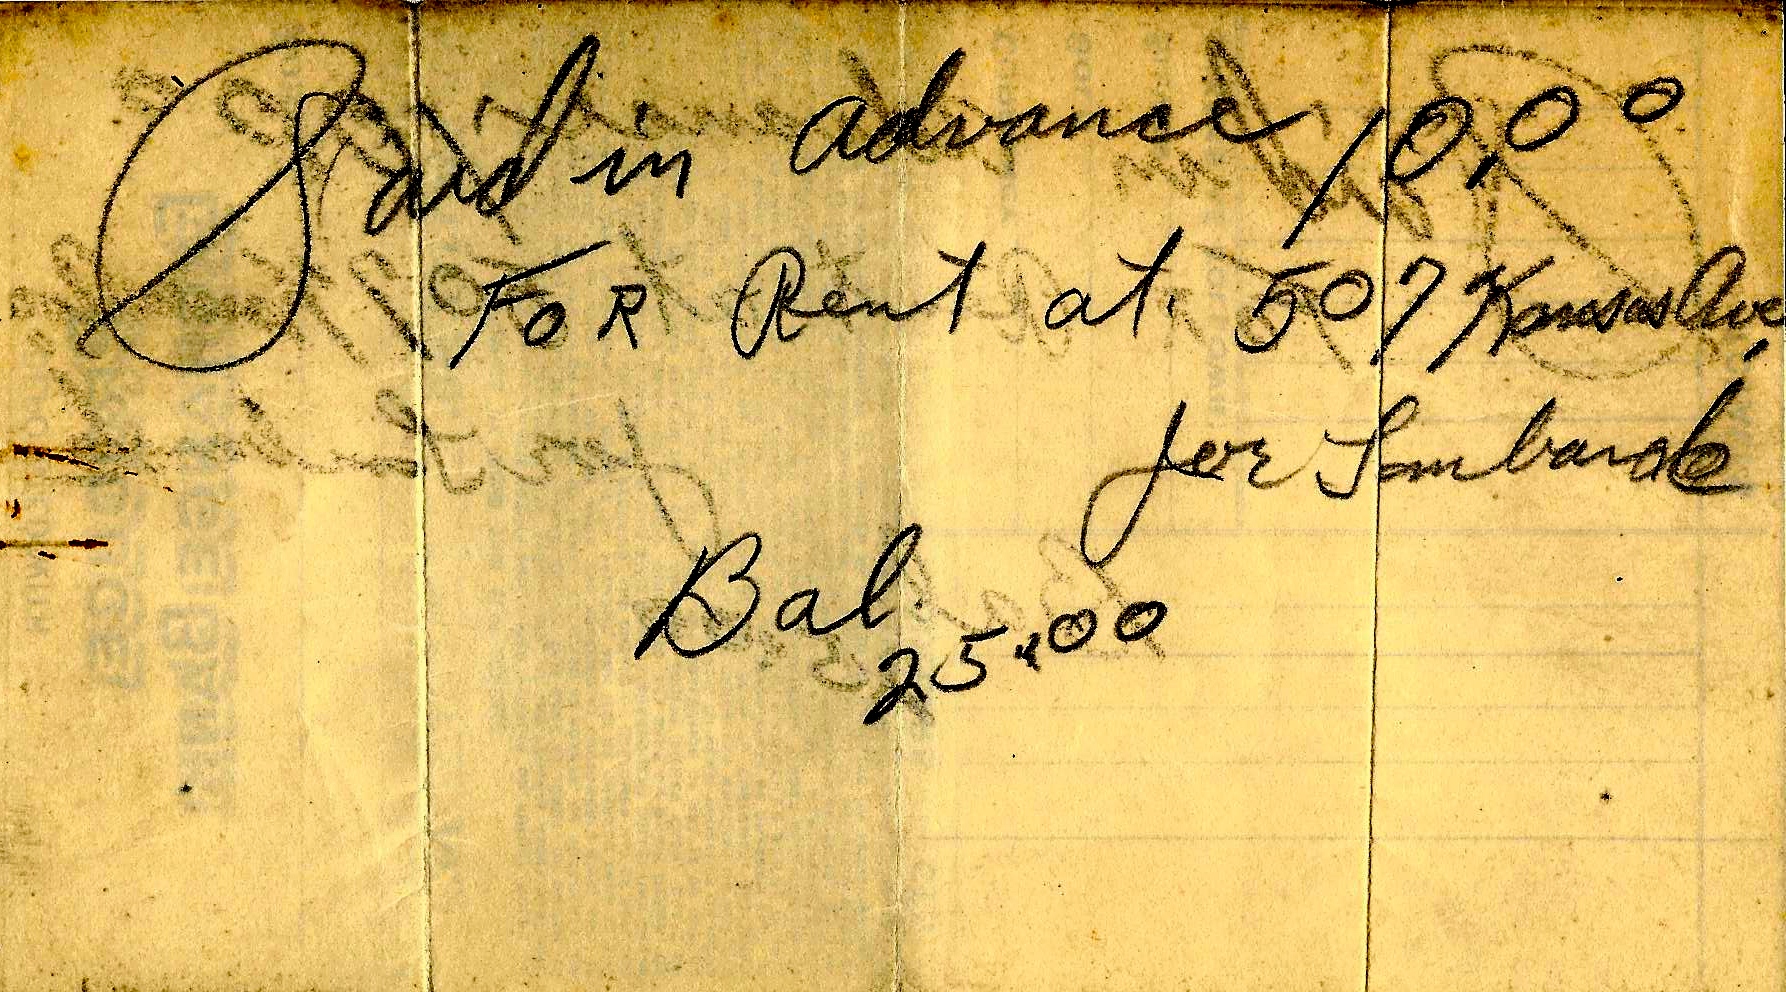 Paid in advance 10.00
FOR Rent at. 507 Kansas Ave,
Joe Lombardo
Bal
25.00